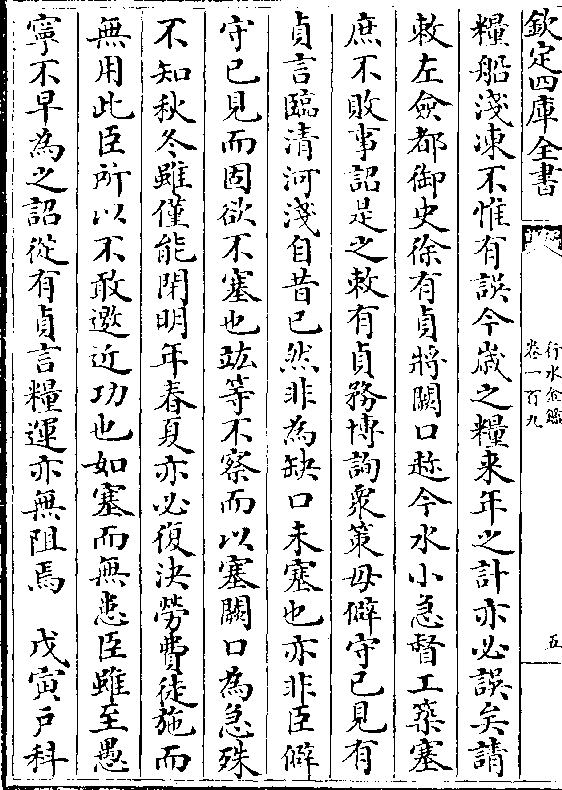 欽定四庫全書
行水金鑑
卷一百九
五
糧船淺凍不惟有誤今嵗之糧来年之計亦必誤矣請
敕左僉都御史徐有貞將闕口趂今水小急督工築塞
庶不敗事詔是之敕有貞務博詢衆策毋僻守已見有
貞言臨清河淺自昔已然非為缺口未塞也亦非臣僻
守已見而固欲不塞也竑等不察而以塞闕口為急殊
不知秋冬雖僅能閉明年春夏亦必復決勞費徒施而
無用此臣所以不敢邀近功也如塞而無患臣雖至愚
寧不早為之詔從有貞言糧運亦無阻焉　戊寅户科